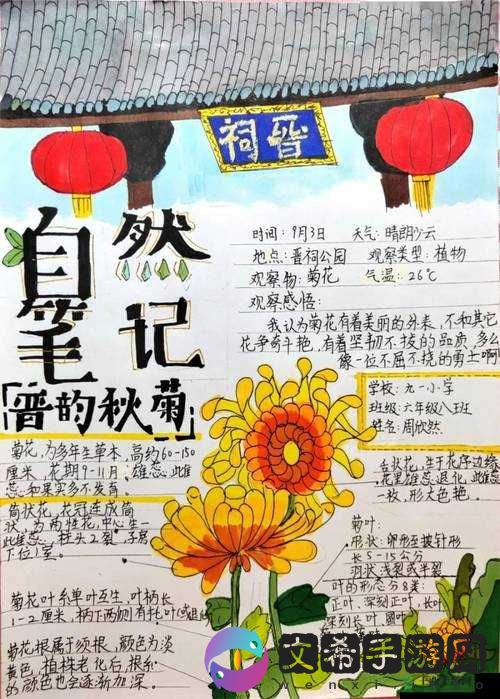 晋祠
自然
笔记
「晋韵秋菊」
时间：9月3日 天气：晴朗少云
地点：晋祠公园 观察类型：植物
观察物：菊花 气温：26℃
观察感悟：
我认为菊花有着美丽的外表，不和其它
花争奇斗艳，有着坚韧不拔的品质，多么
像一位不屈不挠的勇士啊！
学校：九一小学
班级：六年级八班
姓名：周欣然
菊花，为多年生草本，高约60-150
厘米，花期9-11月。雄蕊、雌
蕊和果实多不发育。
筒状花，花冠连成筒
状，为两性花，中心生一
雌蕊，柱头2裂，子房
下位1室。
菊花叶系单叶互生，叶柄长
1-2厘米，柄下两侧有托叶(或退
菊花根属于须根，颜色为淡
黄色，植株老化后，根系
的颜色也会逐渐加深。
舌状花，生于花序边缘
花里雄蕊退化，雌蕊
一枚，形大色艳。
菊叶：
形状：卵形至披针形
长5-15公分
羽状浅裂或半裂
叶的形态分8类：
正叶，深刻正叶，长叶
深刻长叶，圆叶
文希手游网